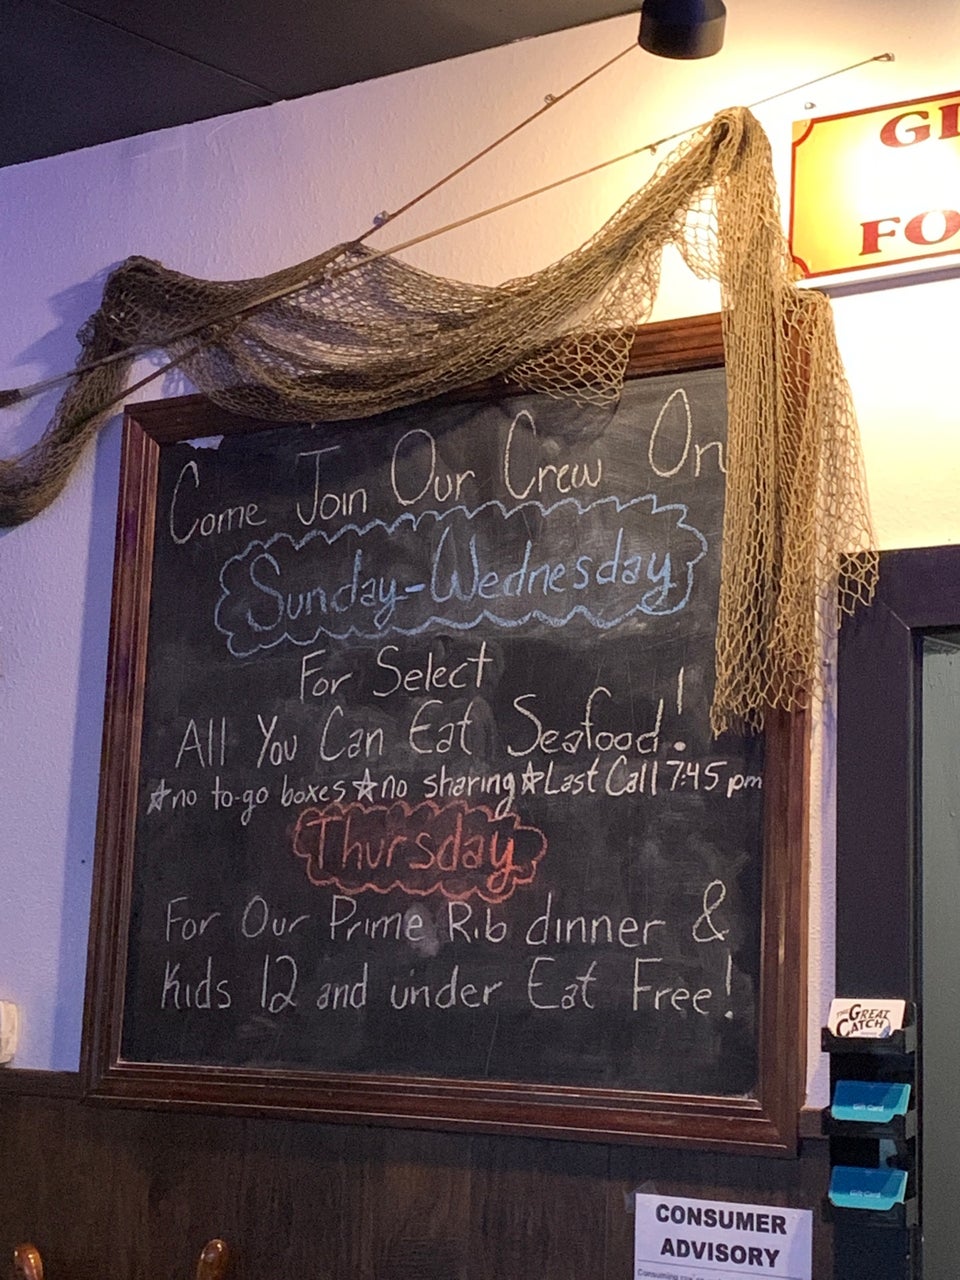 Come Join Our Crew On
Sunday-Wednesday
For Select
All You Can Eat Seafood!
☆no to-go boxes☆no sharing☆Last Call 7:45 pm
Thursday
For Our Prime Rib dinner &
Kids 12 and under Eat Free!
GI
FO
THE GREAT
CATCH
Gift Card
Gift Card
CONSUMER
ADVISORY